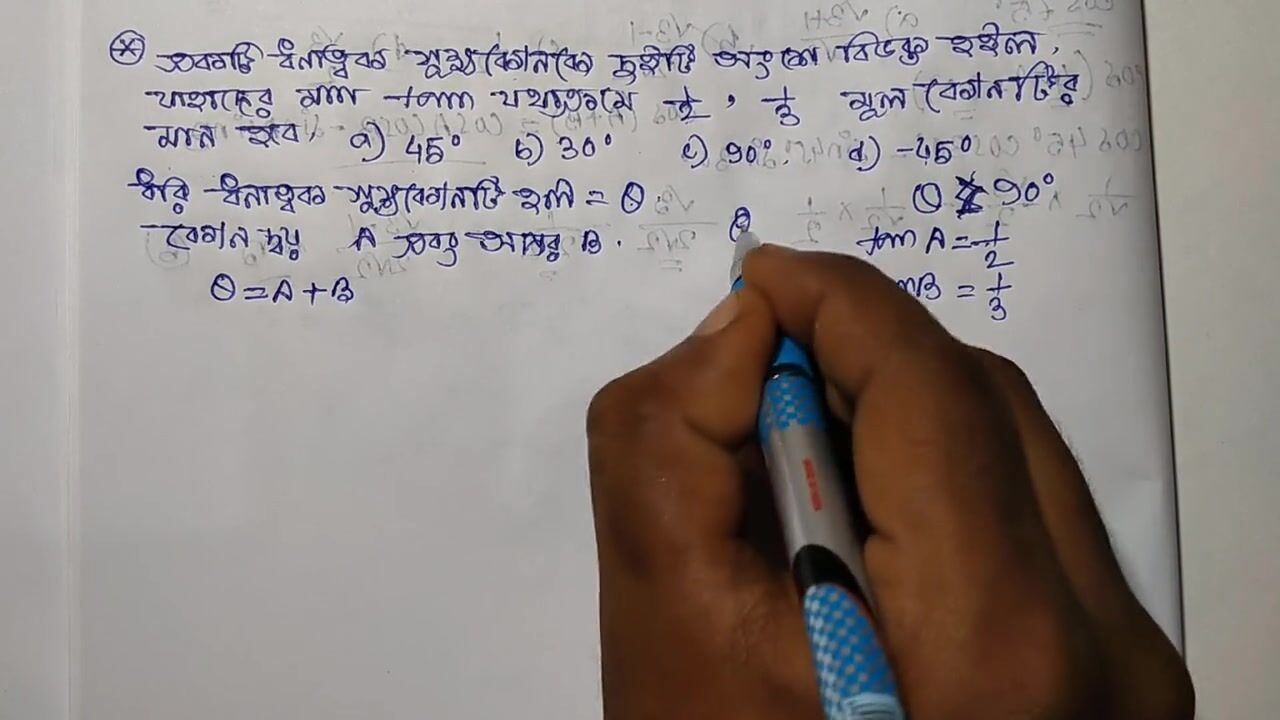 একটি ধনাত্মক সূক্ষ্মকোণকে দুইটি অংশে বিভক্ত হইল,
যাহাদের মান tan যথাক্রমে 1/2, 1/3 মূল কোণটির
মান হবে, a) 45° b) 30° c) 90°. d) -45°
ধরি ধনাত্মক সূক্ষ্মকোণটি হল = θ. θ 90°
কোণ দ্বয় A এবং অপর B. θ tan A = 1/2
θ = A + B B = 1/3